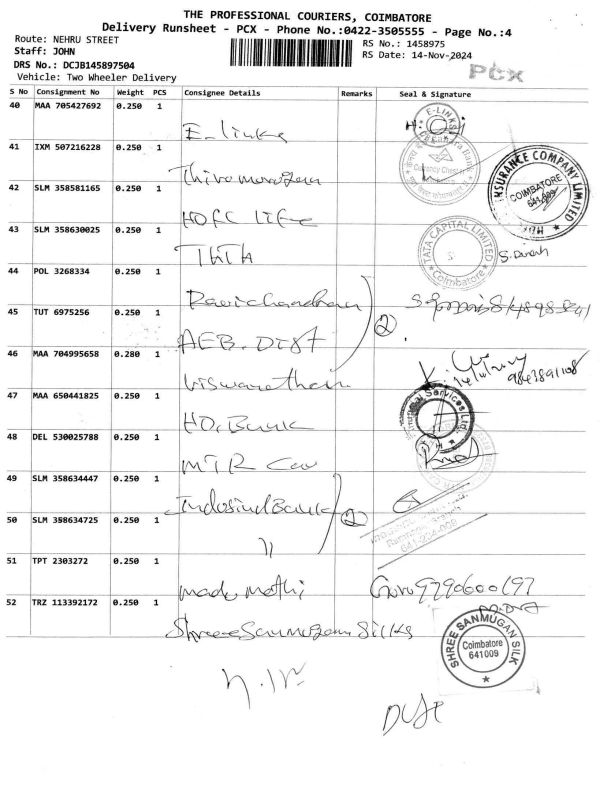 THE PROFESSIONAL COURIERS, COIMBATORE
Delivery Runsheet - PCX - Phone No.:0422-3505555 - Page No.:4
Route: NEHRU STREET
RS No.: 1458975
Staff: JOHN
RS Date: 14-Nov-2024
DRS No.: DCJB145897504
PCX
Vehicle: Two Wheeler Delivery
S No Consignment No Weight PCS Consignee Details Remarks Seal & Signature
40 MAA 705427692 0.250 1
E-links
E-LINKS
41 IXM 507216228 0.250 1
INSURANCE COMPANY LIMITED
COIMBATORE
641 009
42 SLM 358581165 0.250 1
HDFC life
43 SLM 358630025 0.250 1
TATA
TATA CAPITAL LIMITED
Coimbatore
44 POL 3268334 0.250 1
Ravichandran
45 TUT 6975256 0.250 1
2
AEB. Dist
46 MAA 704995658 0.280 1
Viswanathan
9843891108
47 MAA 650441825 0.250 1
Services Ltd.
HD. Bank
48 DEL 530025788 0.250 1
MTR
49 SLM 358634447 0.250 1
Indusind Bank
2
50 SLM 358634725 0.250 1
"
51 TPT 2303272 0.250 1
Guru 9790600197
52 TRZ 113392172 0.250 1
Shree Sanmugam Silks
SHREE SANMUGAN SILK
Coimbatore
641009